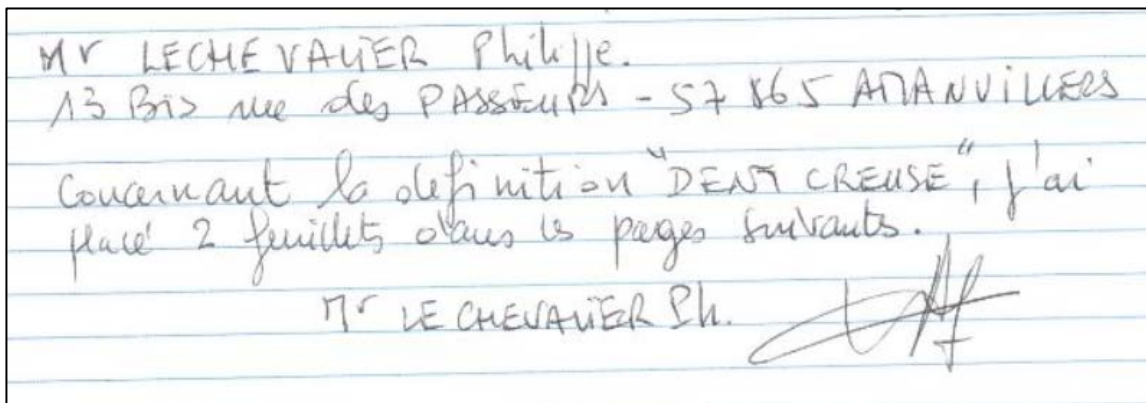 Mr LECHEVALIER Philippe.
13 Bis rue des PASSEURS - 57 865 AMANVILLERS
Concernant la definition "DENT CREUSE", j'ai
placé 2 feuillets dans les pages suivants.
Mr LE CHEVALIER Ph.